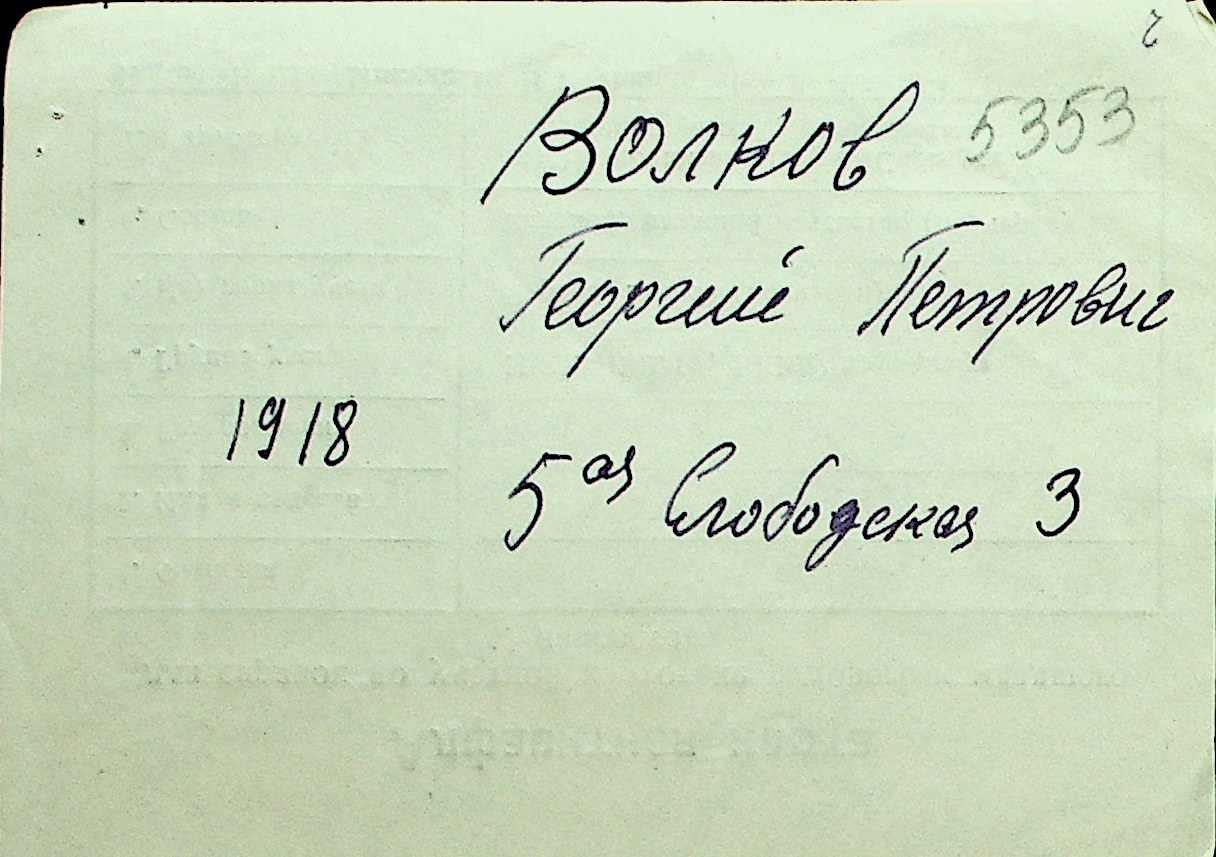 Волков 5353
Георгий Петрович
1918
5ая Слободская 3